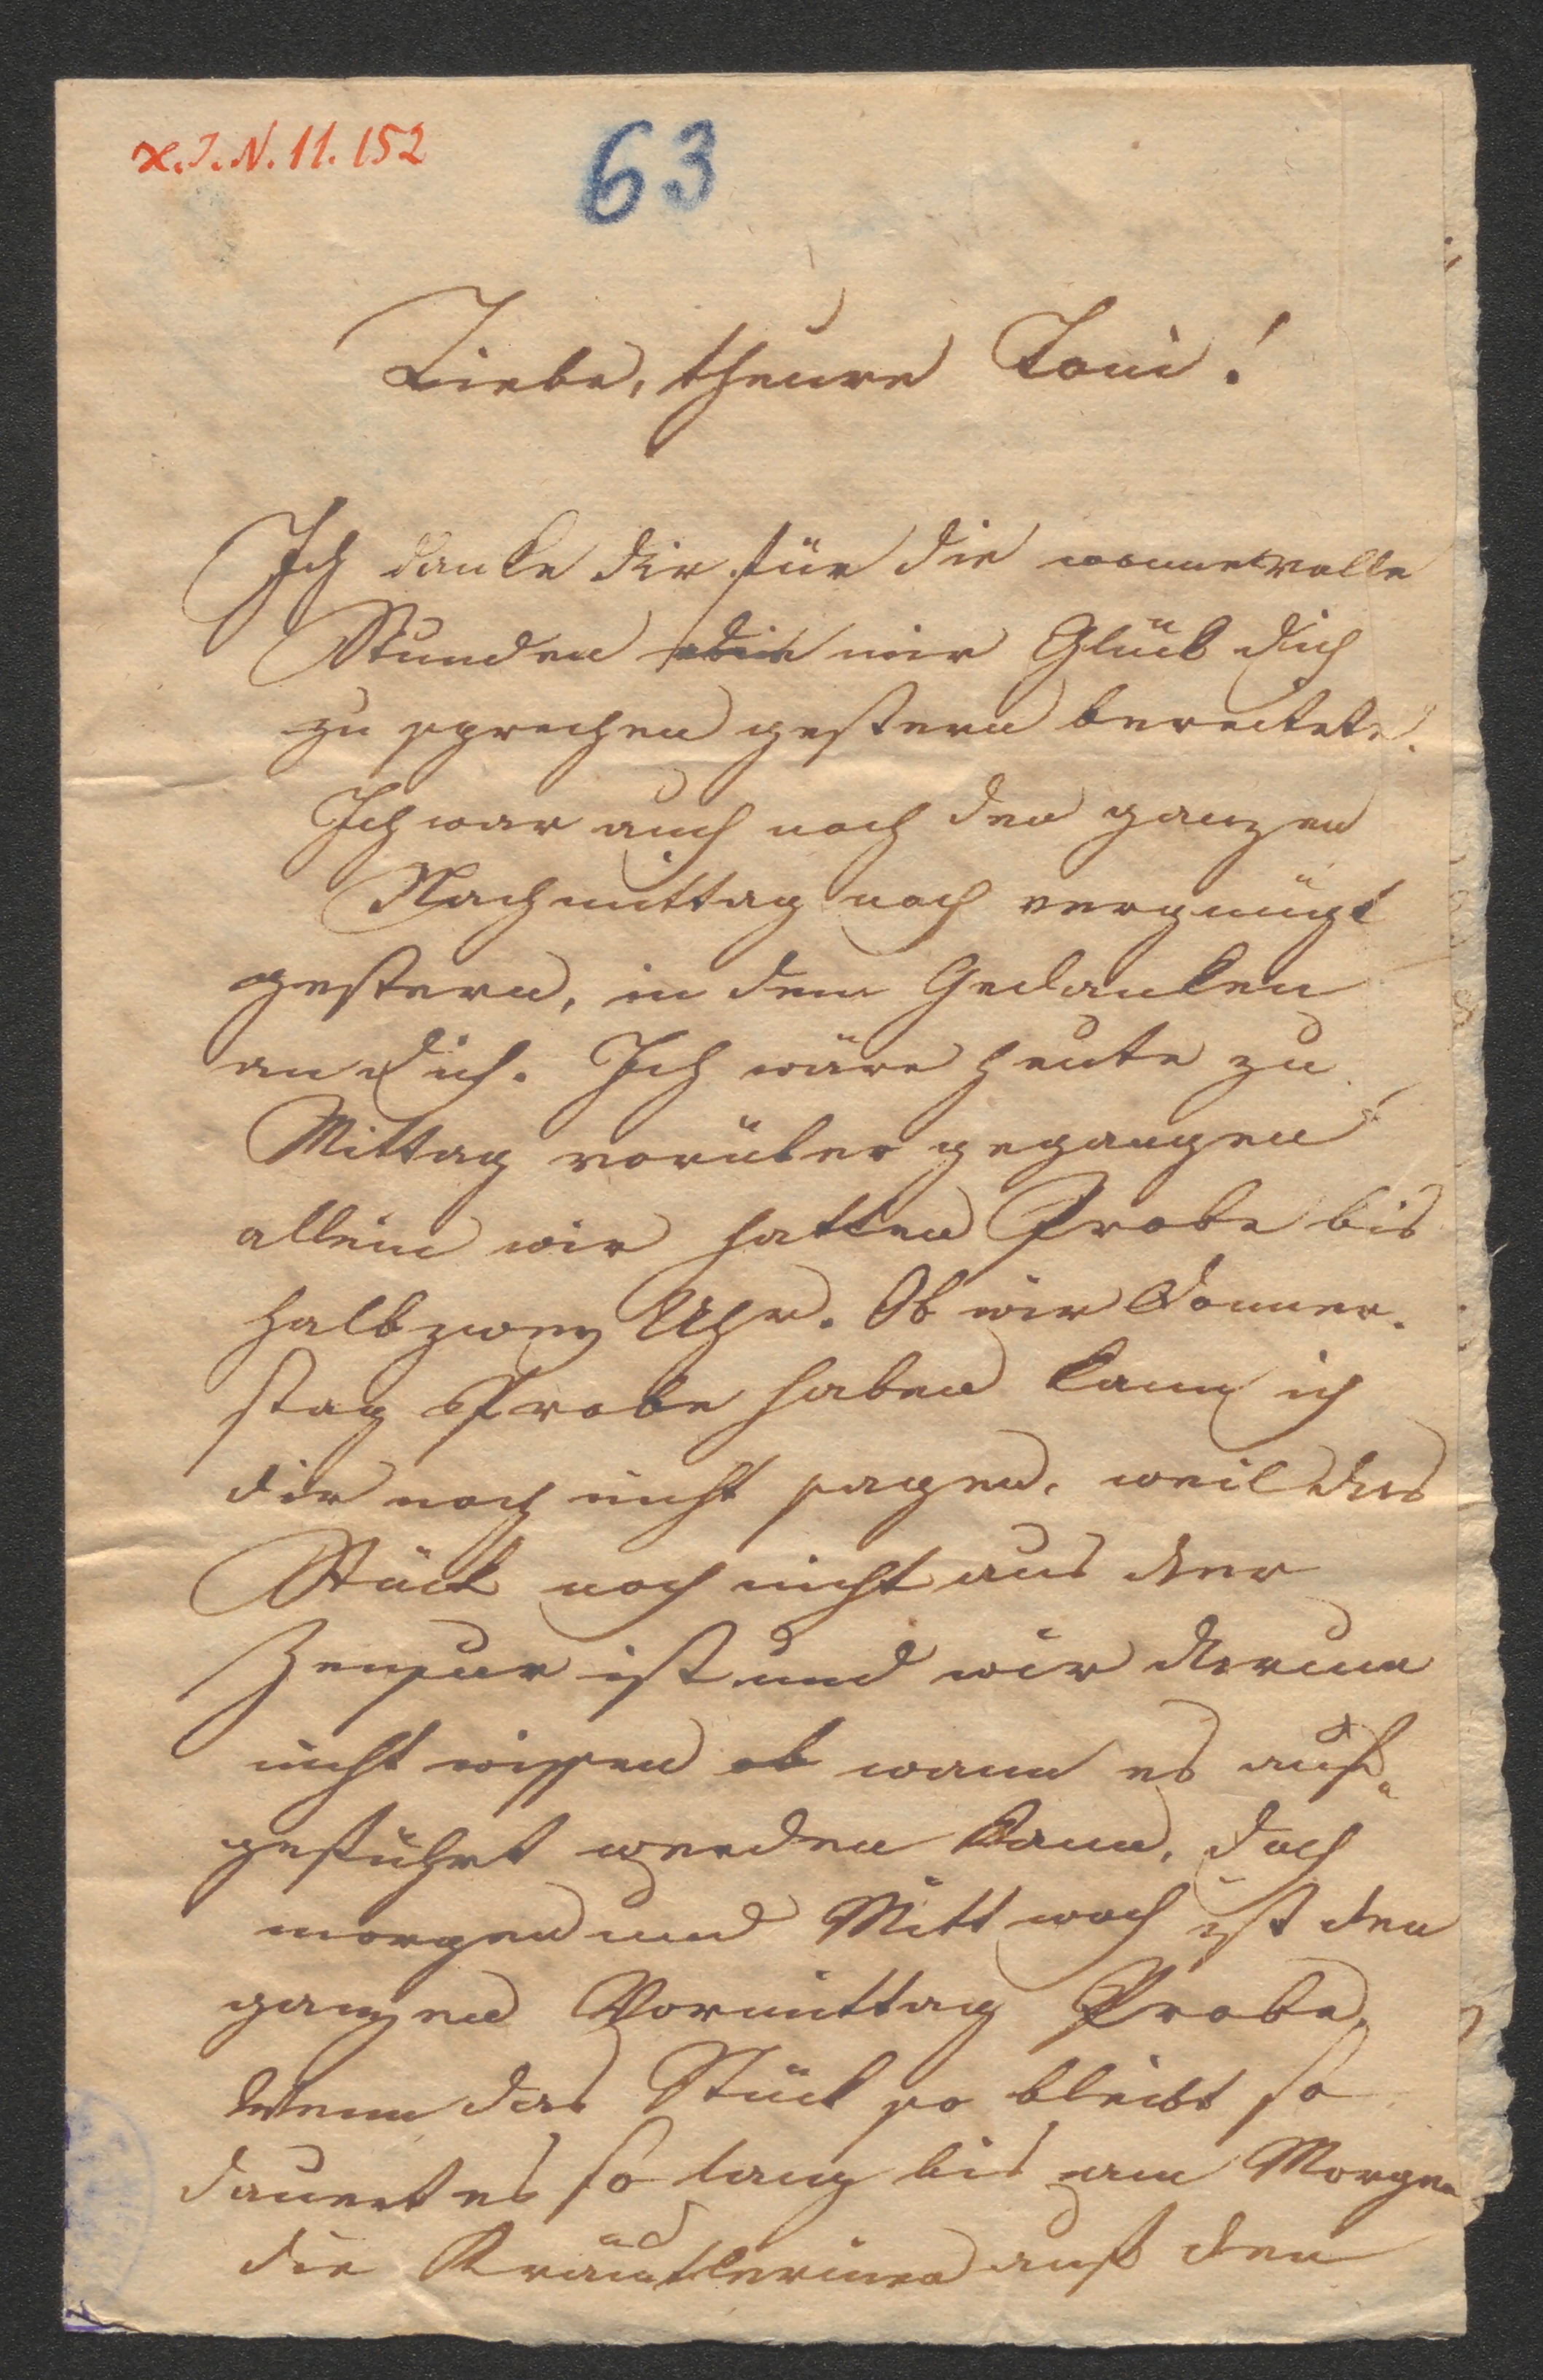 H.I.N. 11.152
63
Liebe, theure Toni!
Ich danke dir für die wonnevolle
Stunden die mir Glück dich
zu sprechen gestern bereitete.
Ich war auch noch den ganzen
Nachmittag noch vergnügt
gestern, in dem Gedanken
an dich. Ich wäre heute zu
Mittag vorüber gegangen
allein wir hatten Probe bis
halb zwey Uhr. Ob wir Donner-
stag Probe haben kann ich
dir noch nicht sagen, weil das
Stück noch nicht aus der
Zensur ist und wir darum
nicht wissen ob wann es auf-
geführt werden kann, doch
morgen und Mittwoch ist den
ganzen Vormittag Probe.
Wenn das Stück so bleibt so
dauert es so lang bis am Morgen
die Kräutlerinen auf den